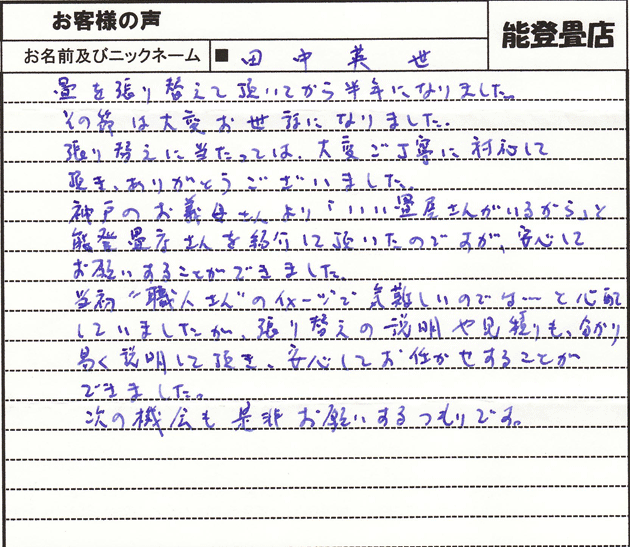 お客様の声
能登畳店
お名前及びニックネーム ■ 田中英世
畳を張り替えて頂いてから半年になりました。
その節は大変お世話になりました。
張り替えに当たっては、大変ご丁寧に対応して
頂き、ありがとうございました。
神戸のお義母さんより「いい畳屋さんがいるから」と
能登畳店さんを紹介して頂いたのですが、安心して
お願いすることができました。
当初“職人さん”のイメージで気難しいのでは…と心配
していましたが、張り替えの説明や見積りも、分かり
易く説明して頂き、安心してお任かせすることが
できました。
次の機会も是非お願いするつもりです。